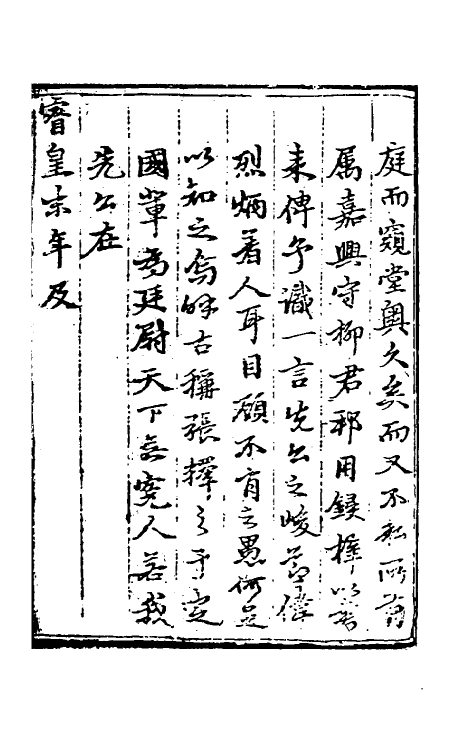 庭而窺堂奧久矣而又不私所有
属嘉興守柳君邦用録梓以
来俾予識一言先公之峻節偉
烈炳著人耳目顧不肖之愚何足
以知之焉古稱張釋之于定
國輩為廷尉天下無寃人若我
先公在
睿皇末年及